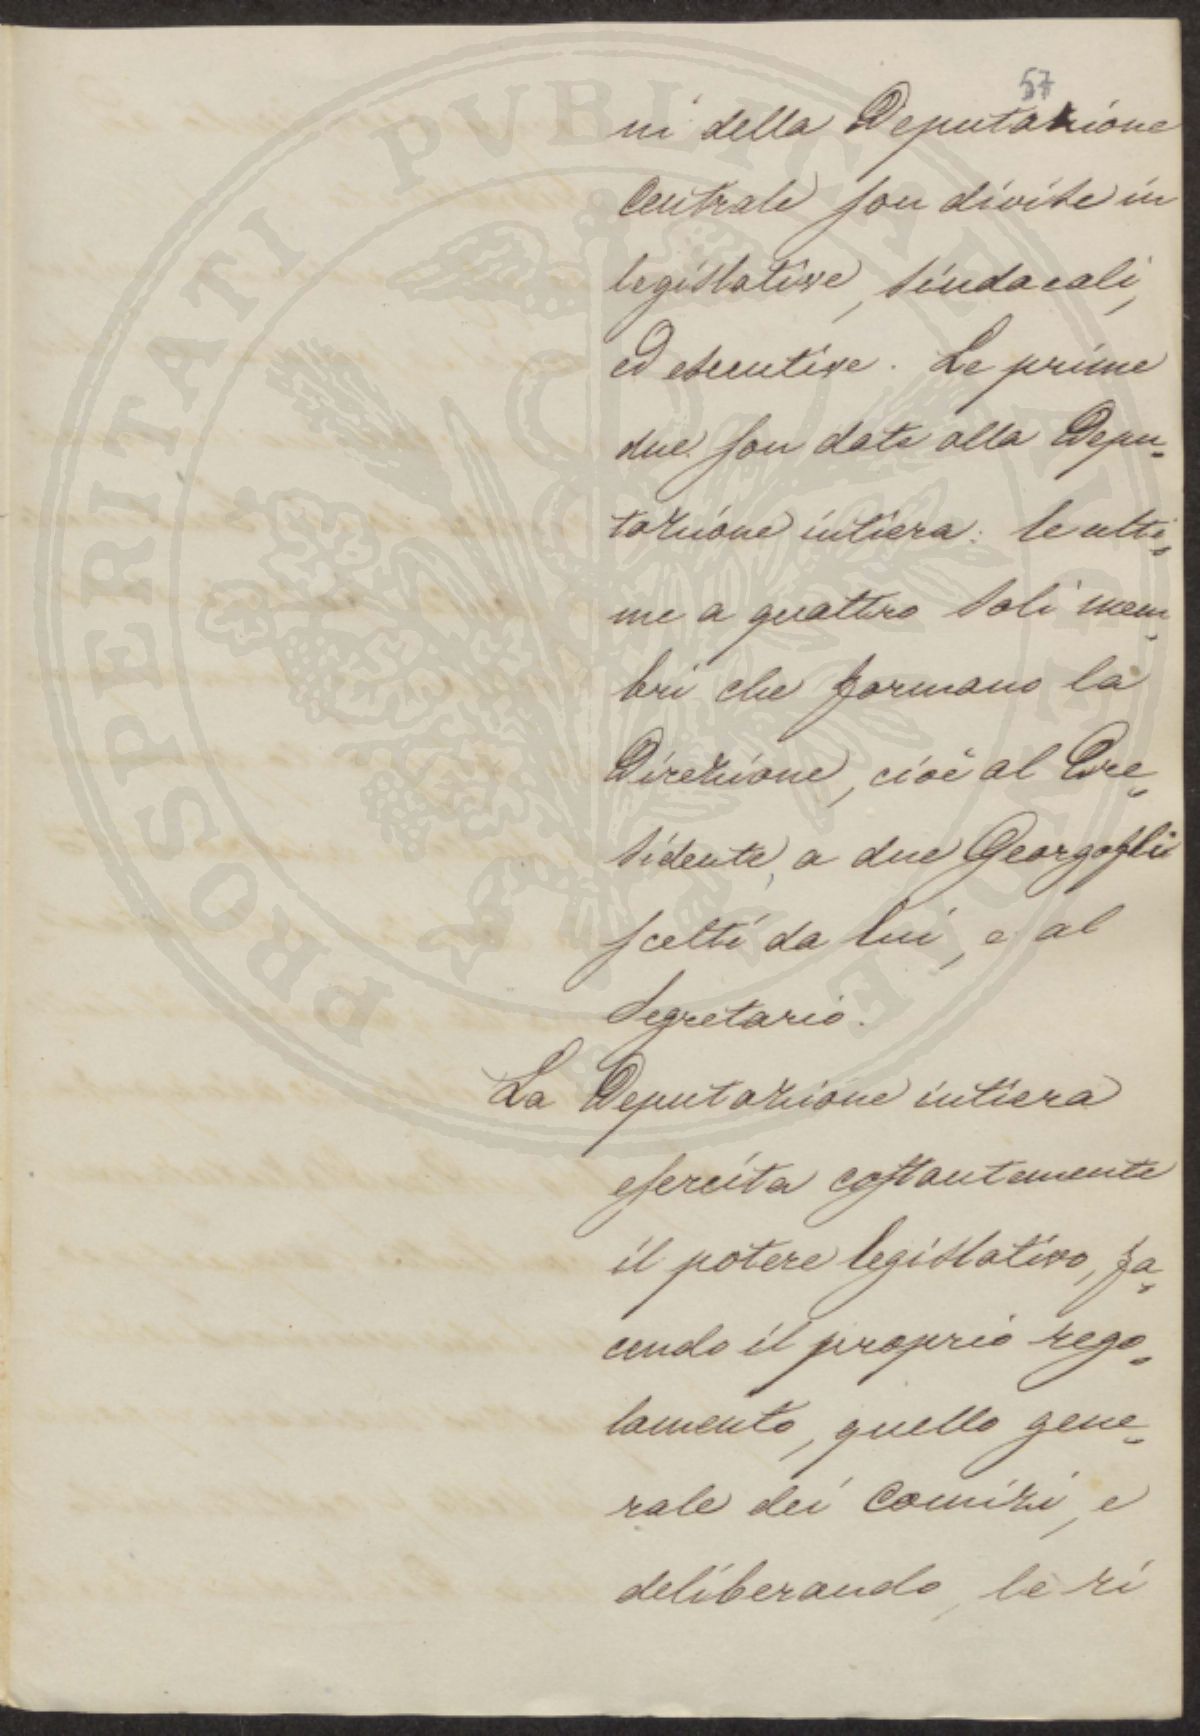 57
ni della Deputazione
Centrale son divise in
legislative, sindacali,
ed esecutive. Le prime
due son date alla Depu-
tazione intiera: le ulti-
me a quattro soli mem-
bri che formano la
Direzione, cioè al Pre-
sidente, a due Georgofili
scelti da lui, e al
Segretario.
La Deputazione intiera
esercita costantemente
il potere legislativo, fa-
cendo il proprio rego-
lamento, quello gene-
rale dei Comizi, e
deliberando, le ri
PROSPERITATI PVBLICAE AVGENDAE